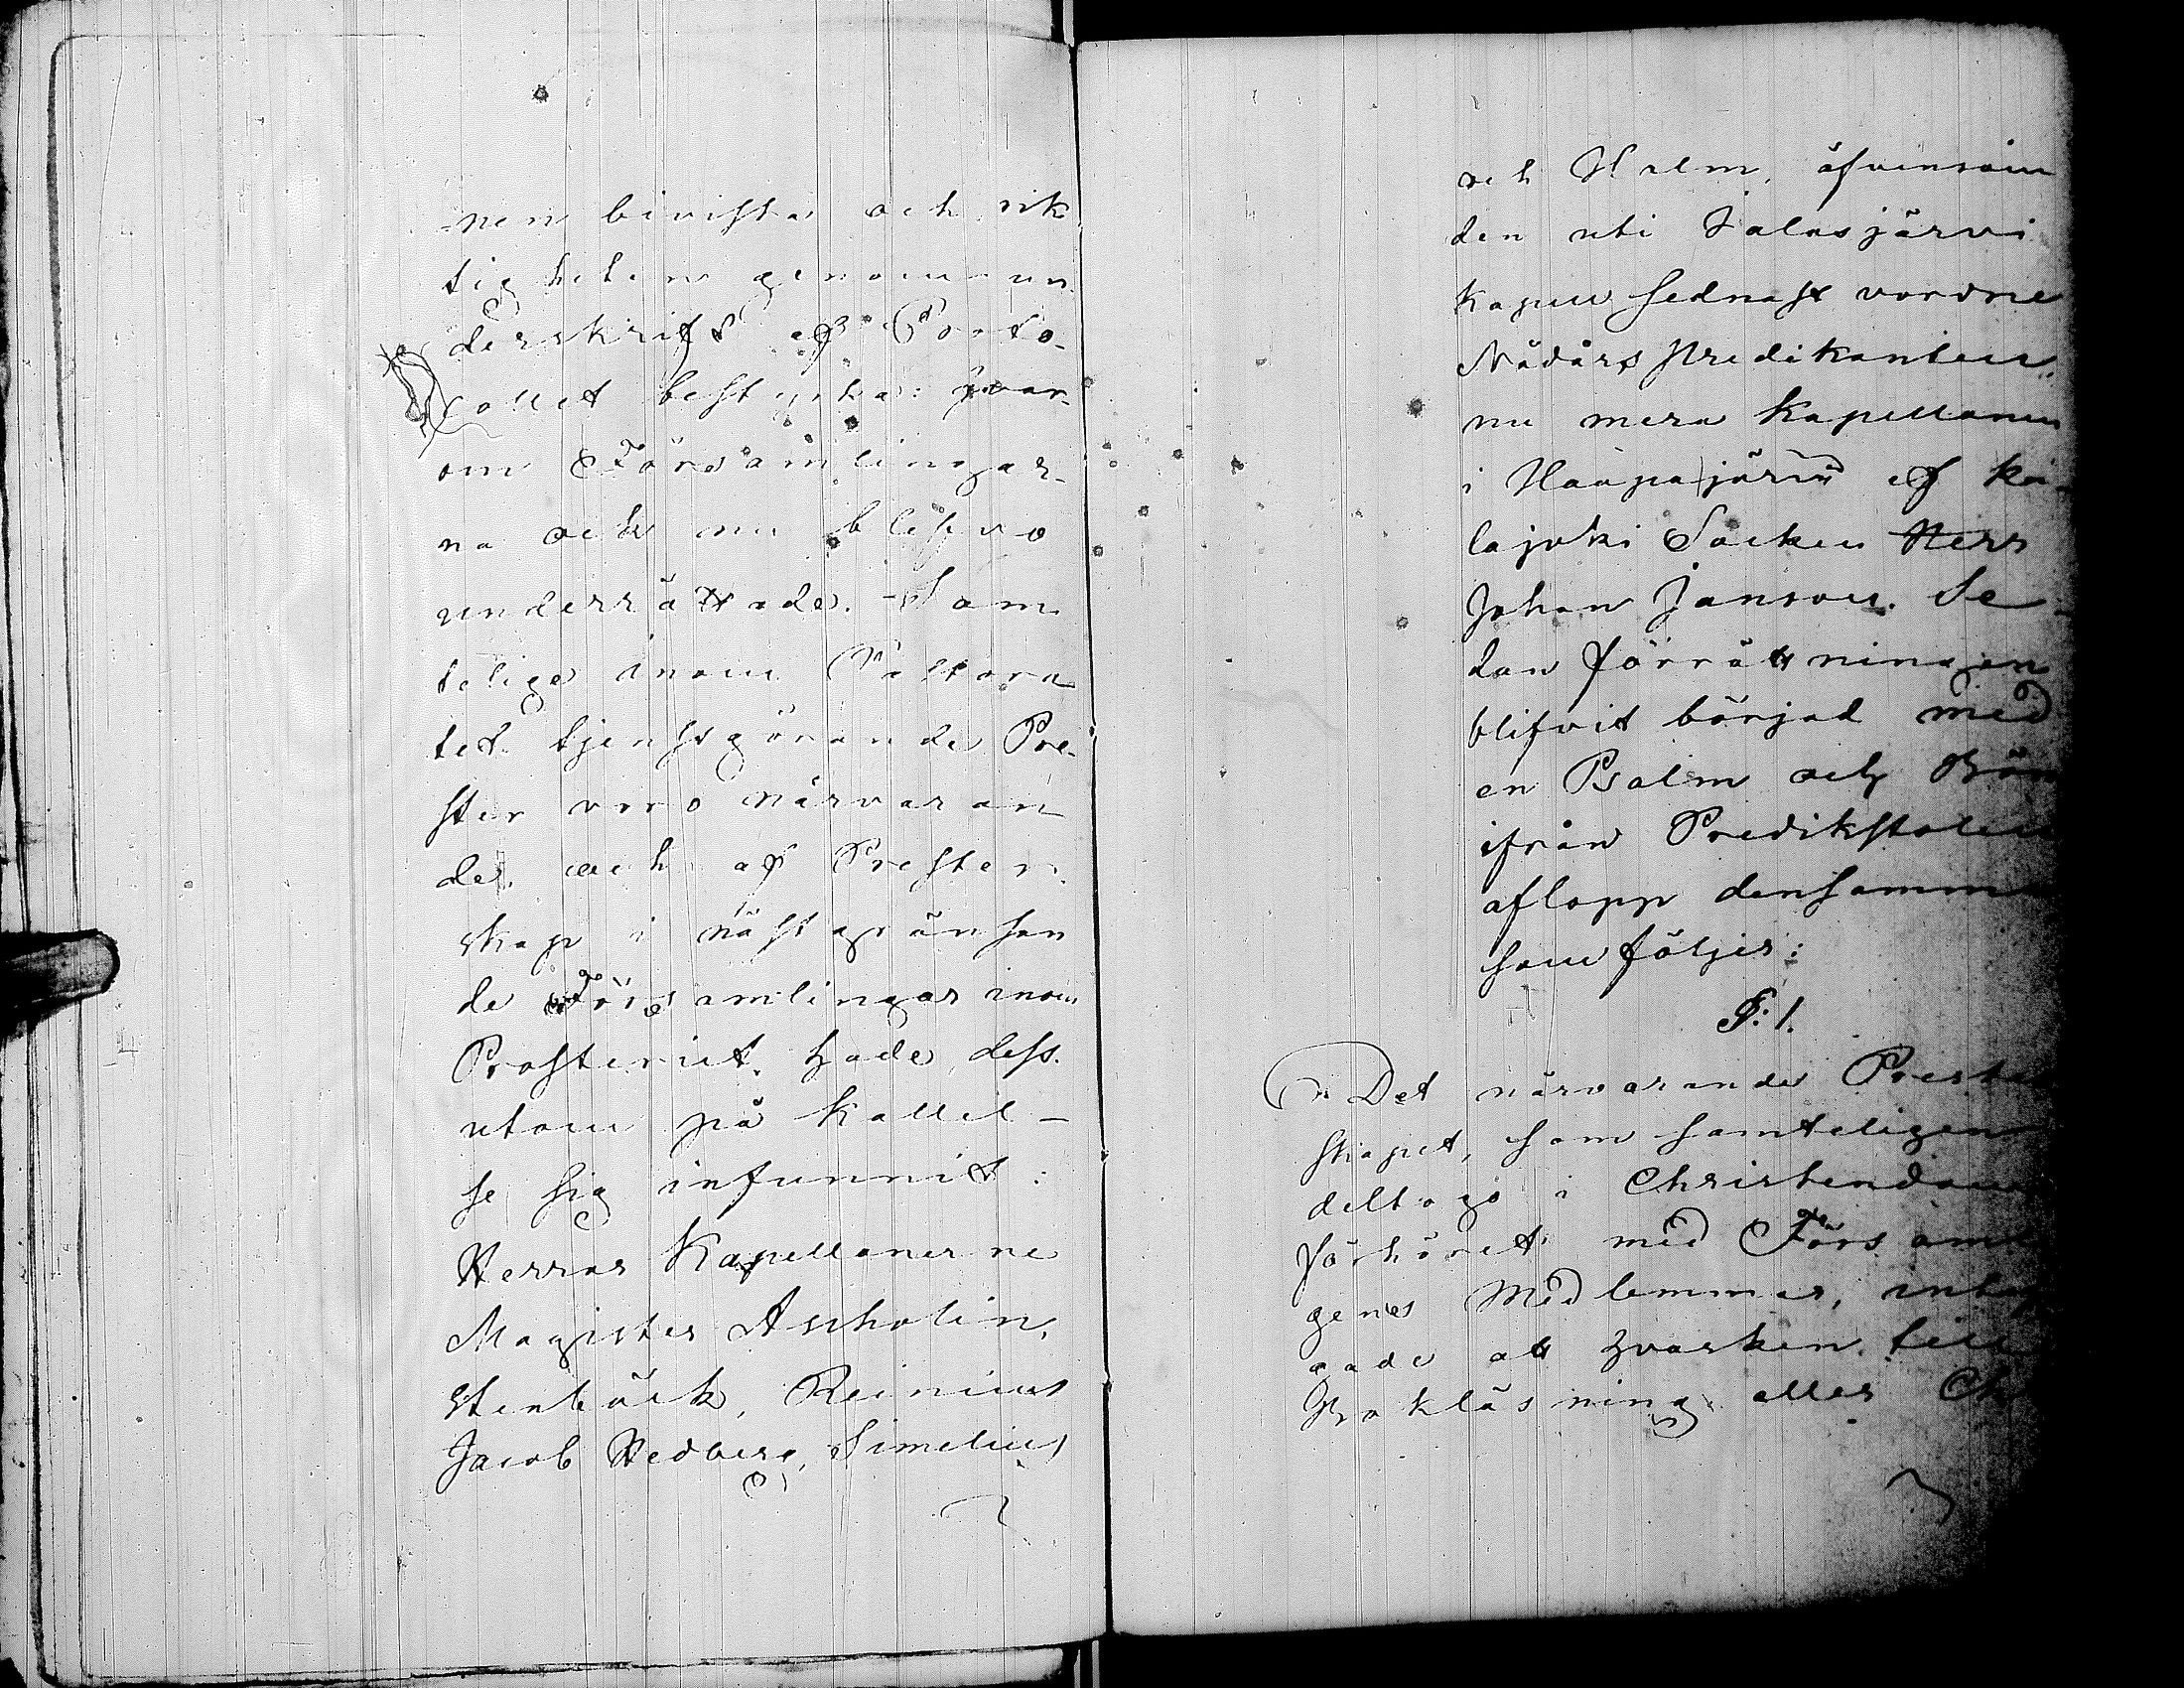 nen bivista och rik
tigheten genom un
derskrift af Proto-
collet bestyrka: hvar-
om Församlingar-
na och nu blefvo
underrättade. - Sam
telige inom Pastora
tet tjenstgörande Pre-
ster voro närvaran
de, och af Prester
skap i näst gränsan
de Församlingar inom
Prosteriet hade dess
utom på kallel-
se sig infunnit:
Herrar Kapellanerne
Magister Aspholin,
Stenbäck, Reinius
Jacob Hedberg, Simelius
och Holm, äfvensom
den uti Jalasjärvi
Kapell sednast vordne
Nådårs Predikanten,
nu mera Kapellanen
i Haapajärvi af Ka-
lajoki Socken Herr
Johan Janson. Se-
dan förrättningen
blifvit börjad med
en Psalm och Bön
ifrån Predikstolen
aflopp densamma
som följer:
§: 1.
Det närvarande Prester
skapet, som samteligen
deltogo i Christendoms
förhöret med Försam
genes Medlemmar, intyg
ade att hvarken till
Bokläsning eller Ch